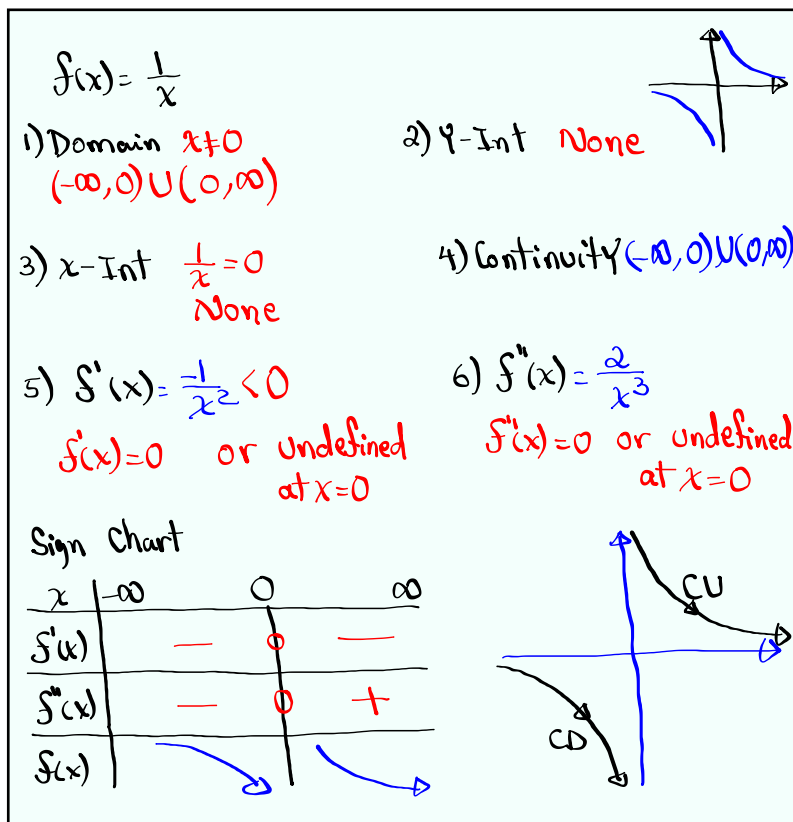 f(x) = 1/x
1) Domain x≠0
(-∞, 0) U (0, ∞)
2) Y-Int None
3) x-Int 1/x = 0
None
4) Continuity (-∞, 0) U (0, ∞)
5) f'(x) = -1/x² < 0
f'(x) = 0 or undefined
at x = 0
6) f''(x) = 2/x³
f''(x) = 0 or undefined
at x = 0
Sign Chart
x -∞ 0 ∞
f'(x) — 0 —
f''(x) — 0 +
f(x)
CU
CD